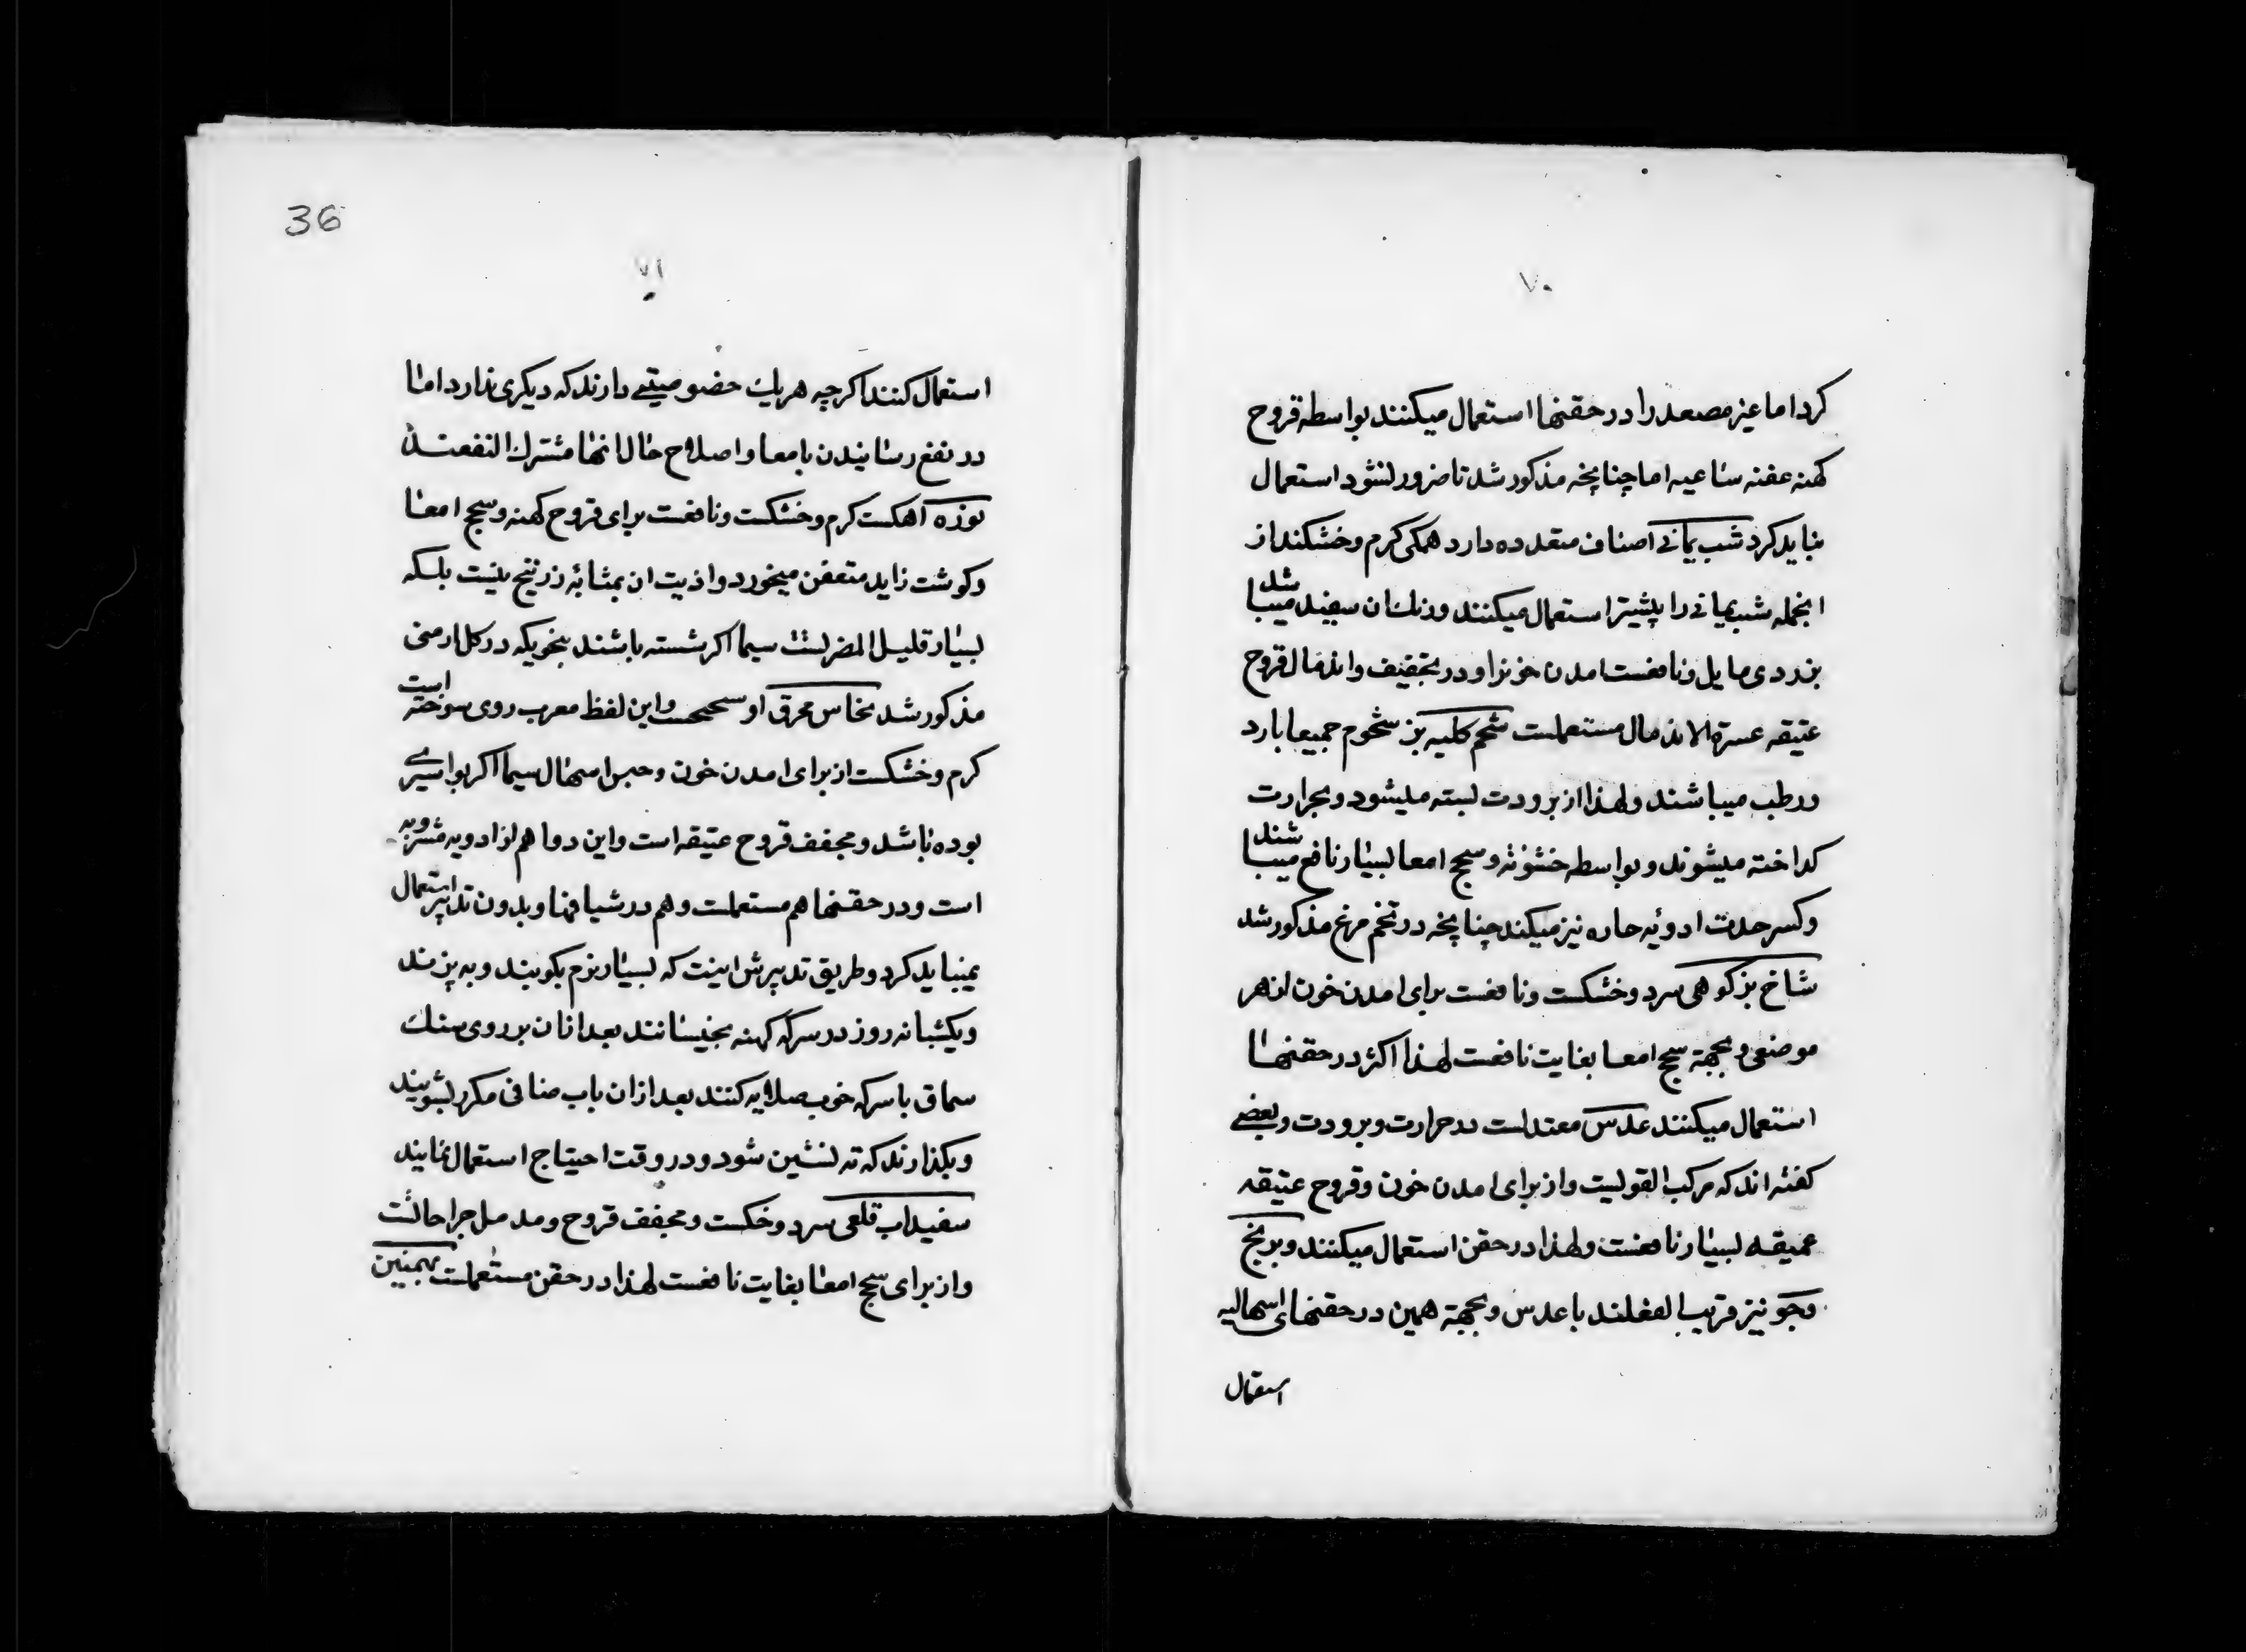 ۷۰
کرد اما غیر مصعد را در حقنها استعمال میکنند بواسطه قروح
کهنه عفنه ساعیه اما چنانچه مذکور شد تا ضرور نشود استعمال
نباید کرد شب یمانی اصناف متعدده دارد همکی کرم و خشکند از
انجمله شب یمانی را پیشتر استعمال میکنند و رنك ان سفید میباشد
بزردی مایل و نافعست امدن خونرا و در تجفیف و اندمال قروح
عتیقه عسرة الاندمال مستعملست شحم کلیه بز شحوم جمیعا بارد
و رطب میباشند و لهذا از برودت بسته میشود و بحرارت
کداخته میشوند و بواسطه خشونة و سحج امعا بسیار نافع میباشند
و کسر حدت ادویه حاره نیز میکند چنانچه در تخم مرغ مذکور شد
شاخ بز کوهی سرد و خشکست و نافعست برای امدن خون از هر
موضعی و بجهة سحج امعا بغایت نافعست لهذا اکثر در حقنها
استعمال میکنند عدس معتدلست در حرارت و برودت و بعضی
کفته اند که مرکب القویست و از برای امدن خون و قروح عتیقه
عمیقه بسیار نافعست و لهذا در حقن استعمال میکنند و برنج
و جو نیز قریب الفعلند با عدس و بجهة همین در حقنهای اسهالیه
استعمال
36
۷۱
استعمال کنند اکرچه هریك خصوصیتی دارند که دیکری ندارد اما
در نفع رسانیدن بامعا و اصلاح حال انها مشترك النفعند
نوره آهکست کرم و خشکست و نافعست برای قروح کهنه و سحج امعا
و کوشت زاید متعفن میخورد و اذیت ان بمثابه زرنیخ نیست بلکه
بسیار قلیل المضرتست سیما اکر شسته باشند بنحویکه در کل ارمنی
مذکور شد نحاس محرق او سحیحست و این لفظ معرب روی سوخته است
کرم و خشکست از برای امدن خون و حبس اسهال سیما اکر بواسیری
بوده باشد و مجفف قروح عتیقه است و این دوا هم از ادویه مشروبه
است و در حقنها هم مستعملست و هم در شیافها و بدون تدابیر استعمال
نمیباید کرد و طریق تدبیرش اینست که بسیار نرم بکوبند و به پزمند
و یکشبانه روز در سرکه کهنه بخیسانند بعد از ان بر روی سنك
سماق با سرکه خوب صلایه کنند بعد از ان باب صافی مکرر بشویند
و بکذارند که ته نشین شود و در وقت احتیاج استعمال نمایند
سفیداب قلعی سرد و خکست و مجفف قروح و مدمل جراحاتست
و از برای سحج امعا بغایت نافعست لهذا در حقن مستعملست بهمنین